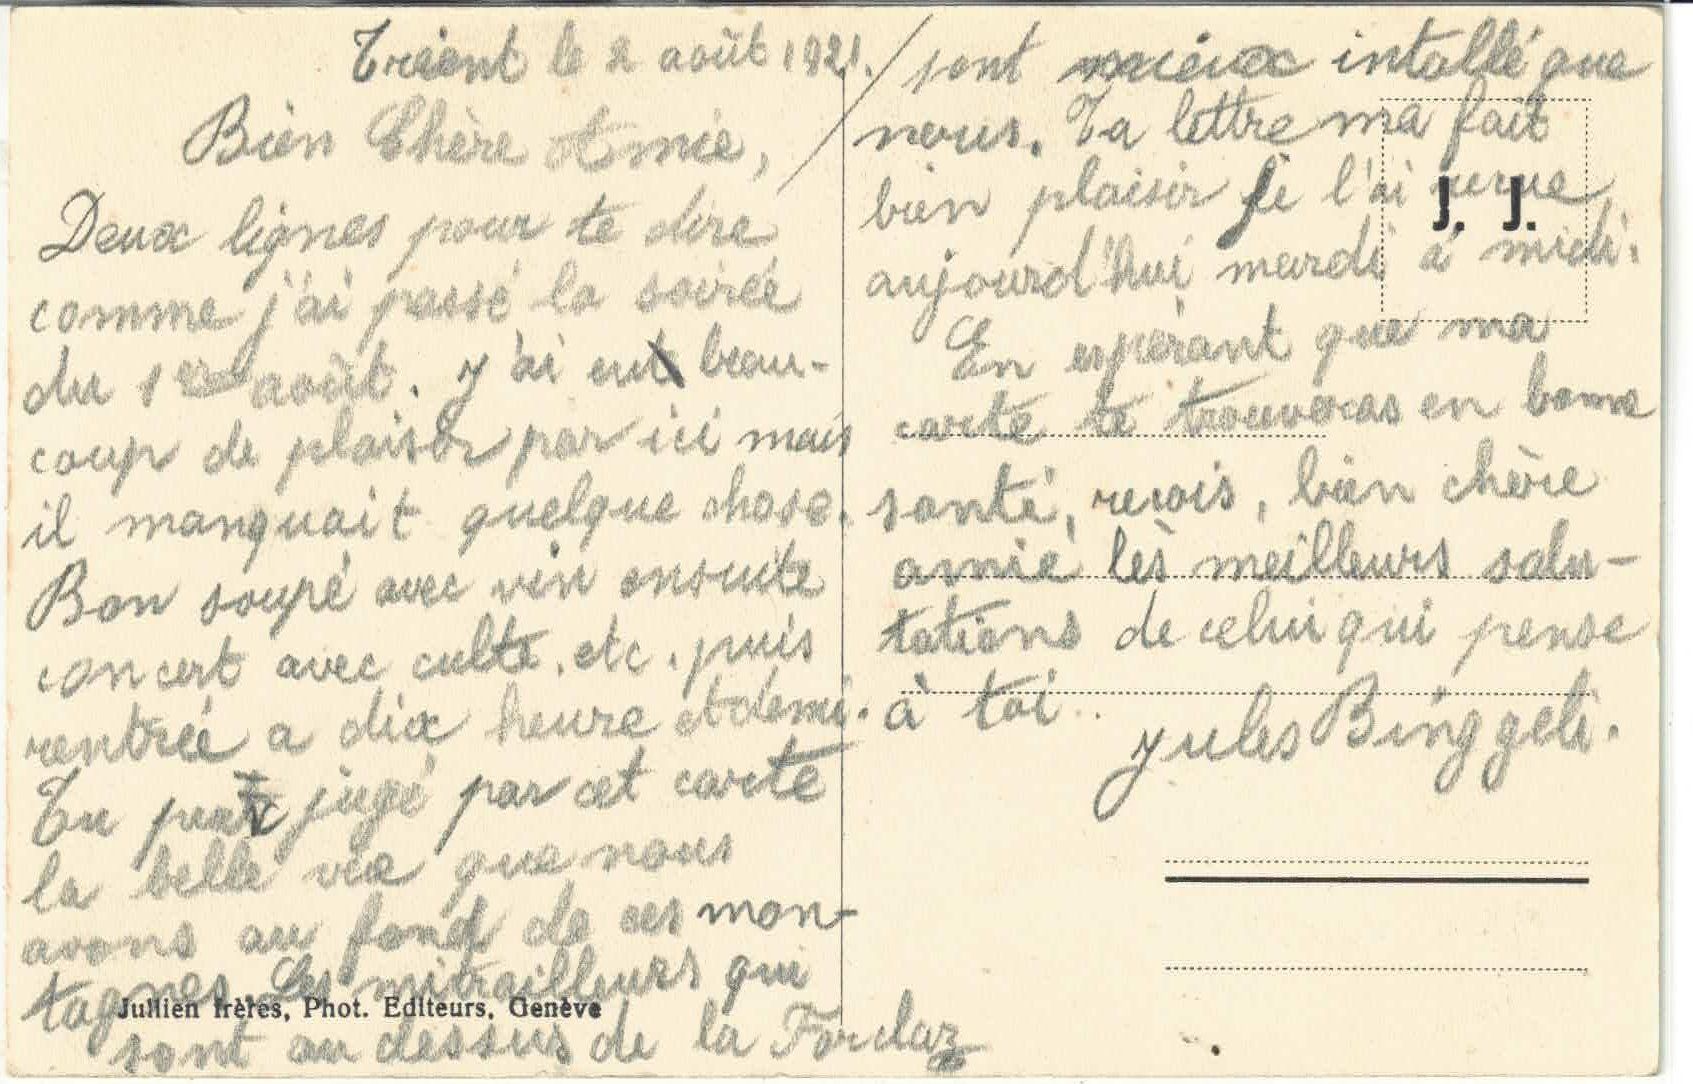 Trient le 2 août 1921.
Bien Chère Amie,
Deux lignes pour te dire
comme j'ai passé la soirée
du 1er août. y'ai eut beau-
coup de plaisir par ici mais
il manquait quelque chose.
Bon soupé avec vin ensuite
concert avec culte, etc. puis
rentrée a dix heure et demi.
Tu peux jugé par cet carte
la belle vie que nous
avons au fond de ces mon-
tagnes. Les mitrailleurs qui
sont au dessus de la Forclaz
Jullien frères, Phot. Editeurs, Genève
sont mieux intallé que
nous. Ta lettre ma fait
bien plaisir je l'ai reçue
aujourd'hui mardi à midi.
J. J.
En espérant que ma
carte te trouveras en bonne
santé, reçois, bien chère
amie les meilleurs salu-
tations de celui qui pense
à toi.
Jules Binggeli.